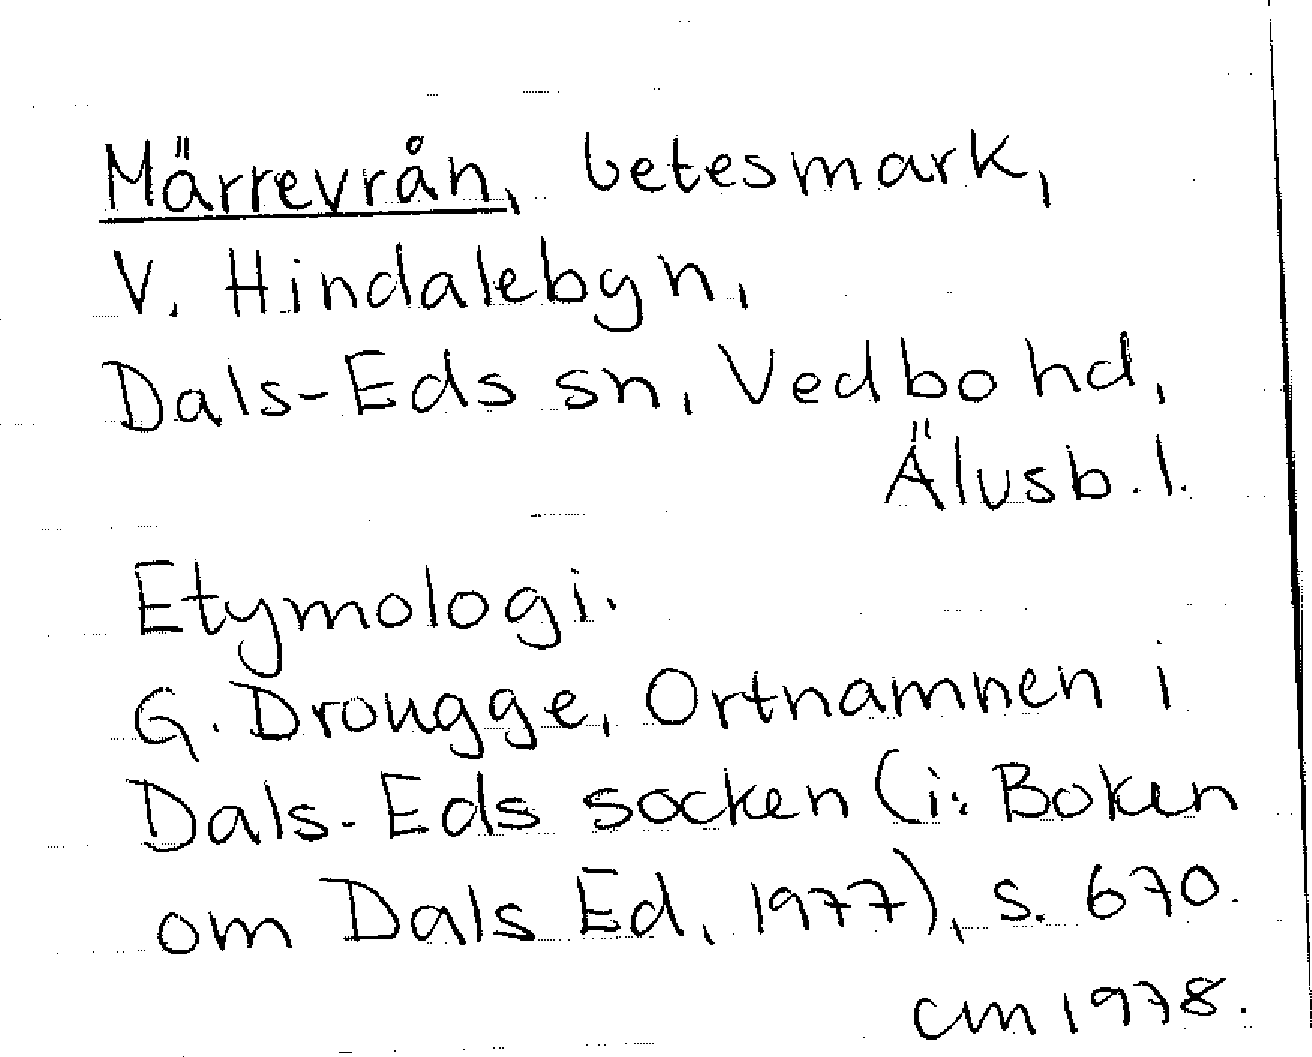 Märrevrån, betesmark,
V. Hindalebyn,
Dals-Eds sn, Vedbo hd,
Älvsb. l.
Etymologi.
G. Drougge, Ortnamnen i
Dals-Eds socken (i: Boken
om Dals Ed, 1977), s. 670.
CM 1978.